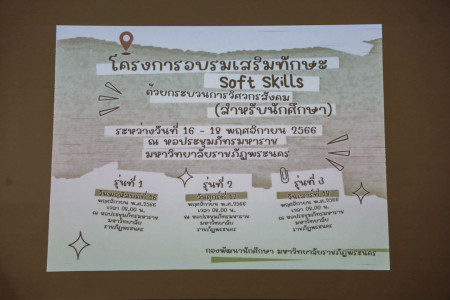 โครงการอบรมเสริมทักษะ
Soft Skills
ด้วยกระบวนการวิศวกรสังคม
(สำหรับนักศึกษา)
ระหว่างวันที่ 16 - 18 พฤศจิกายน 2566
ณ หอประชุมภัทรมหาราช
มหาวิทยาลัยราชภัฏพระนคร
รุ่นที่ 1
วันพฤหัสบดีที่ 16
พฤศจิกายน พ.ศ.2566
เวลา 08.00 น.
ณ หอประชุมภัทรมหาราช
มหาวิทยาลัย
ราชภัฏพระนคร
รุ่นที่ 2
วันศุกร์ที่ 17
พฤศจิกายน พ.ศ.2566
เวลา 08.00 น.
ณ หอประชุมภัทรมหาราช
มหาวิทยาลัย
ราชภัฏพระนคร
รุ่นที่ 3
วันเสาร์ที่ 18
พฤศจิกายน พ.ศ.2566
เวลา 08.00 น.
ณ หอประชุมภัทรมหาราช
มหาวิทยาลัย
ราชภัฏพระนคร
กองพัฒนานักศึกษา มหาวิทยาลัยราชภัฏพระนคร